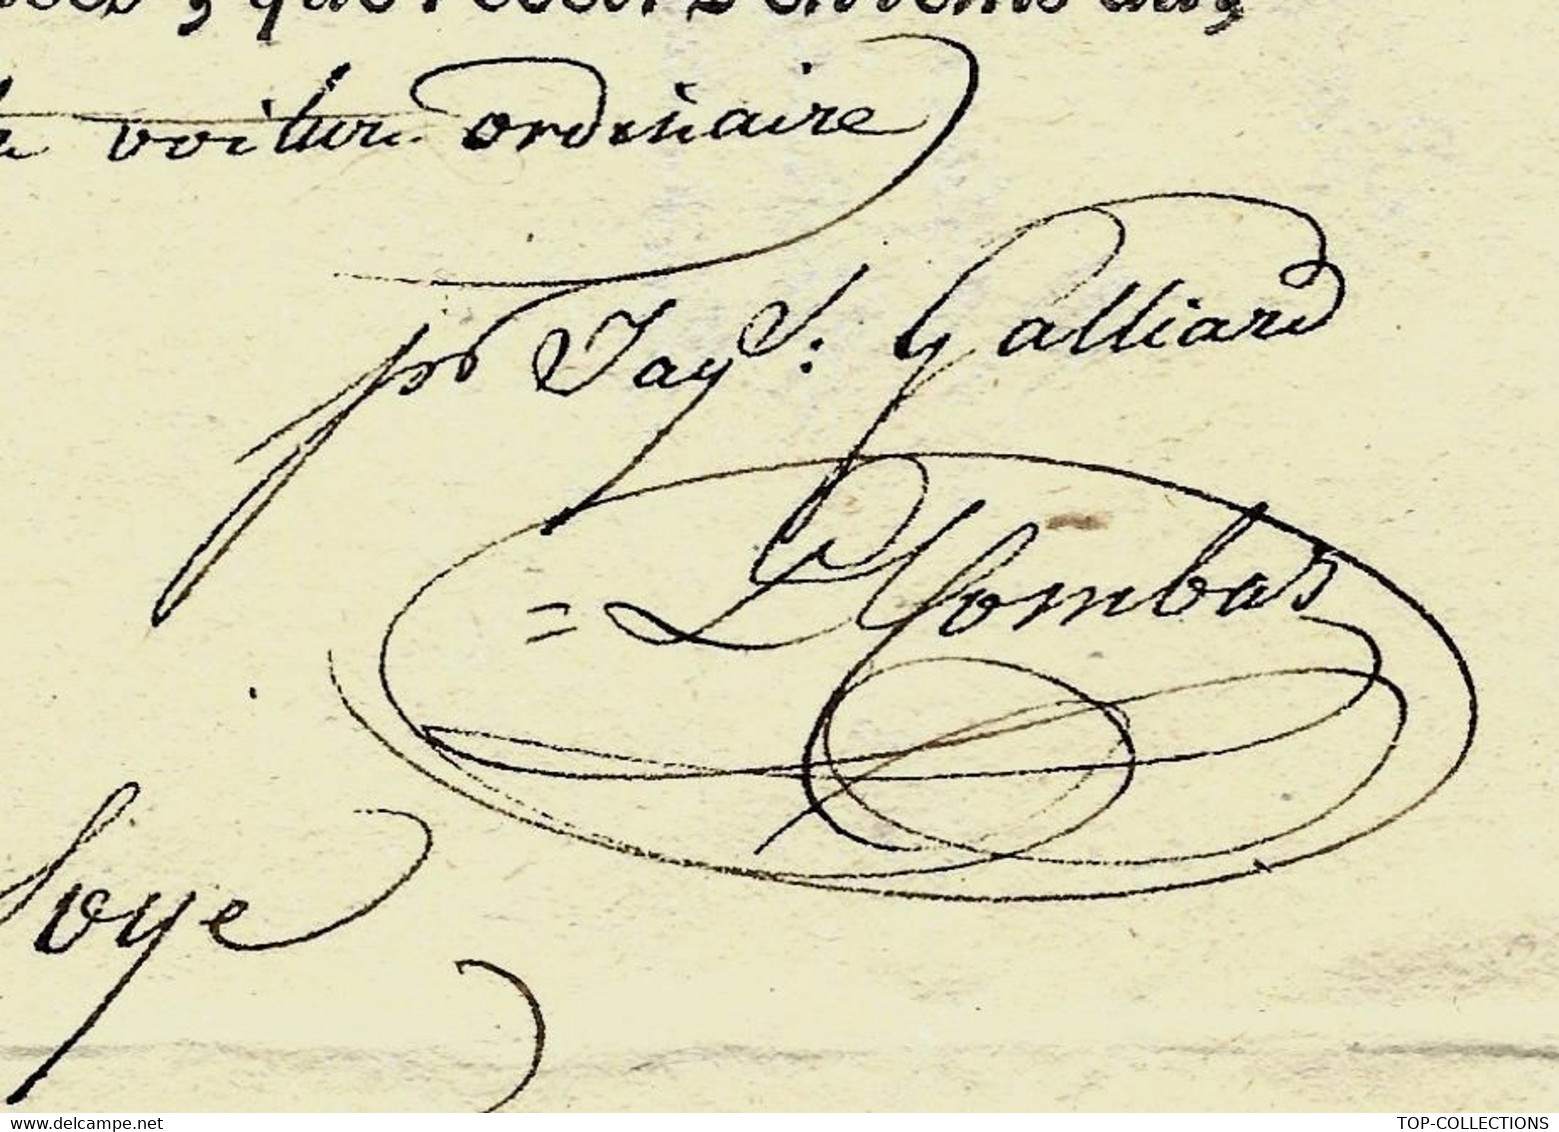 voiture ordinaire
pr Jay S: Galliard
= L Combas
Soye
delcampe.net
TOP-COLLECTIONS